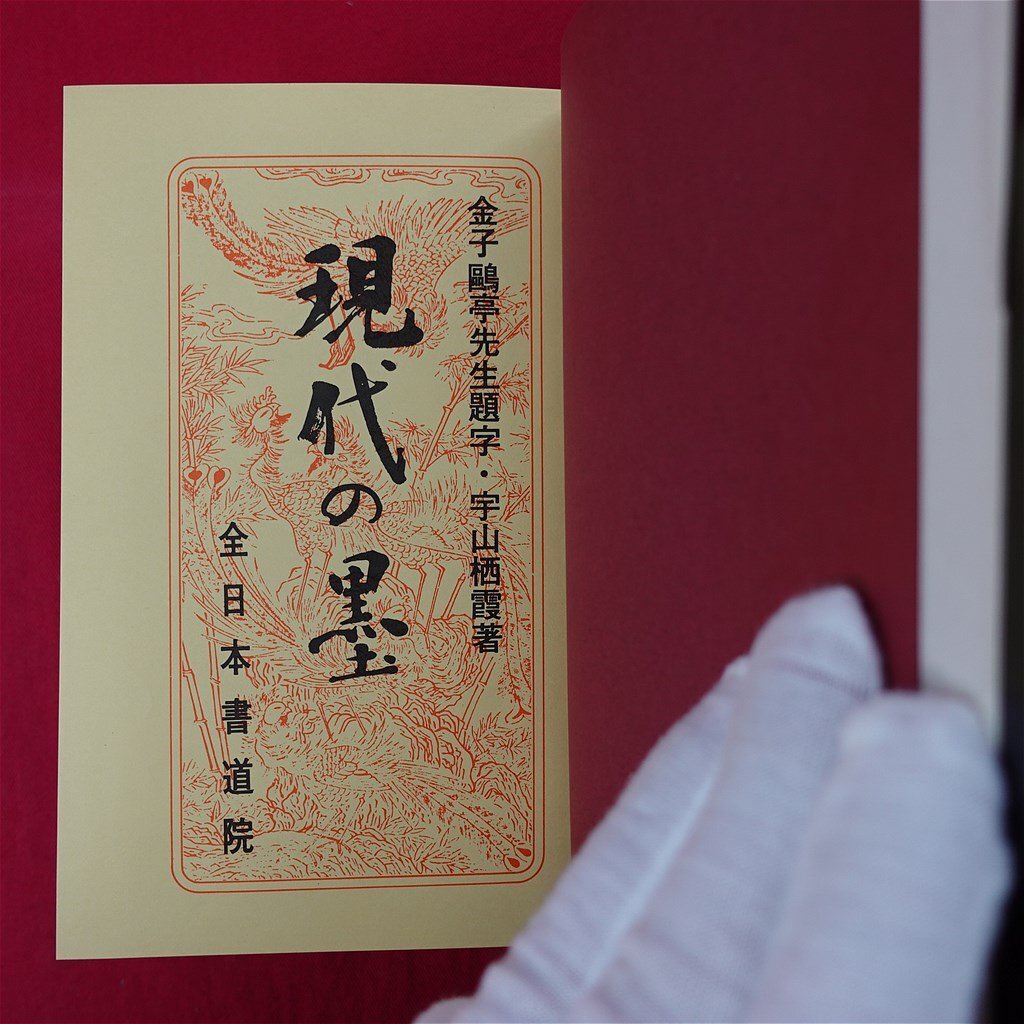 金子鷗亭先生題字・宇山栖霞著
現代の墨
全日本書道院